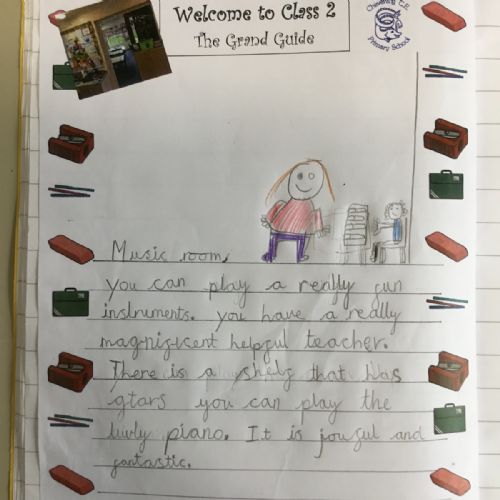 Welcome to Class 2
The Grand Guide
Primary School
Music room,
you can play a really fun
instruments. you have a really
magnificent helpful teacher.
There is a shelf that has
gtars you can play the
luvly piano. It is joyful and
fantastic.